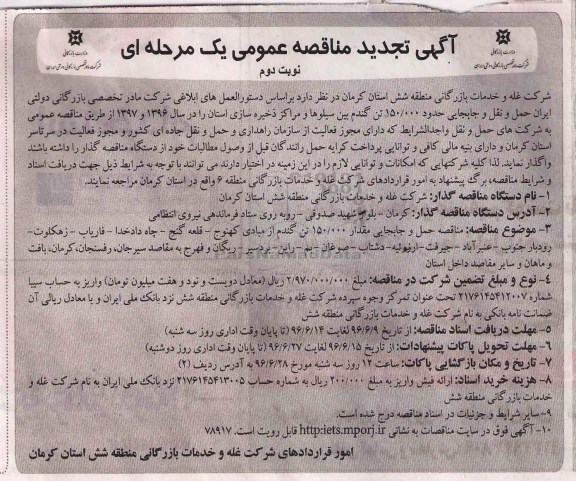 آگهی تجدید مناقصه عمومی یک مرحله ای
نوبت دوم
وزارت بازرگانی
وزارت بازرگانی
شرکت غله و خدمات بازرگانی منطقه شش استان کرمان در نظر دارد براساس دستورالعمل های ابلاغی شرکت مادر تخصصی بازرگانی دولتی
ایران حمل و نقل و جابجایی حدود ۱۵۰/۰۰۰ تن گندم بین سیلوها و مراکز ذخیره سازی استان را در سال ۱۳۹۶ و ۱۳۹۷ از طریق مناقصه عمومی
به شرکت های حمل و نقل واجدالشرایط که دارای مجوز فعالیت از سازمان راهداری و حمل و نقل جاده ای کشور و مجوز فعالیت در سرتاسر
استان کرمان و دارای بنیه مالی کافی و توانایی پرداخت کرایه حمل رانندگان قبل از وصول مطالبات خود از دستگاه مناقصه گذار را داشته باشند
واگذار نماید. لذا کلیه شرکتهایی که امکانات و توانایی لازم را در این زمینه در اختیار دارند می توانند با توجه به شرایط ذیل جهت دریافت اسناد
و شرایط مناقصه، برگ پیشنهاد به امور قراردادهای شرکت غله و خدمات بازرگانی منطقه ۶ واقع در استان کرمان مراجعه نمایند.
۱- نام دستگاه مناقصه گذار: شرکت غله و خدمات بازرگانی منطقه شش استان کرمان
۲- آدرس دستگاه مناقصه گذار: کرمان - بلوار شهید صدوقی - روبه روی ستاد فرماندهی نیروی انتظامی
۳- موضوع مناقصه: مناقصه حمل و جابجایی مقدار ۱۵۰/۰۰۰ تن گندم از مبادی کهنوج - قلعه گنج - چاه دادخدا - فاریاب - زهکلوت-
رودبار جنوب - عنبرآباد - جیرفت - ارزوئیه - دشتاب - صوغان - بم - راین - بردسیر - ریگان و فهرج به مقاصد سیرجان، رفسنجان، کرمان، بافت
و ماهان و سایر مقاصد داخل استان
۴- نوع و مبلغ تضمین شرکت در مناقصه: مبلغ ۲/۹۷۰/۰۰۰/۰۰۰ ریال (معادل دویست و نود و هفت میلیون تومان) واریز به حساب سیبا
شماره ۲۱۷۶۱۴۵۴۱۲۰۰۷ تحت عنوان تمرکز وجوه سپرده شرکت غله و خدمات بازرگانی منطقه شش نزد بانک ملی ایران و یا معادل ریالی آن
ضمانت نامه بانکی به نام شرکت غله و خدمات بازرگانی منطقه شش
۵- مهلت دریافت اسناد مناقصه: از تاریخ ۹۶/۶/۹ لغایت ۹۶/۶/۱۴ (تا پایان وقت اداری روز سه شنبه)
۶- مهلت تحویل پاکات پیشنهادات: از تاریخ ۹۶/۶/۱۵ لغایت ۹۶/۶/۲۷ (تا پایان وقت اداری روز دوشنبه)
۷- تاریخ و مکان بازگشایی پاکات: ساعت ۱۲ روز سه شنبه مورخ ۹۶/۶/۲۸ به آدرس ردیف (۲)
۸- هزینه خرید اسناد: ارائه فیش واریز به مبلغ ۲۰۰/۰۰۰ ریال به شماره حساب ۲۱۷۶۱۴۵۴۱۳۰۰۵ نزد بانک ملی ایران به نام شرکت غله و
خدمات بازرگانی منطقه شش
۹- سایر شرایط و جزئیات در اسناد مناقصه درج شده است.
۱۰- آگهی فوق در سایت مناقصات به نشانی http:iets.mporj.ir قابل رویت است. ۷۸۹۱۷
امور قراردادهای شرکت غله و خدمات بازرگانی منطقه شش استان کرمان